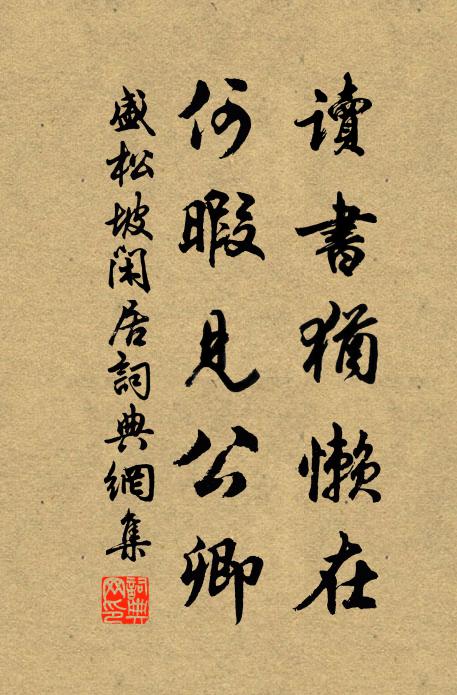 讀書猶懶在
何暇見公卿
盛松坡閑居詞典網集
詞典
网印